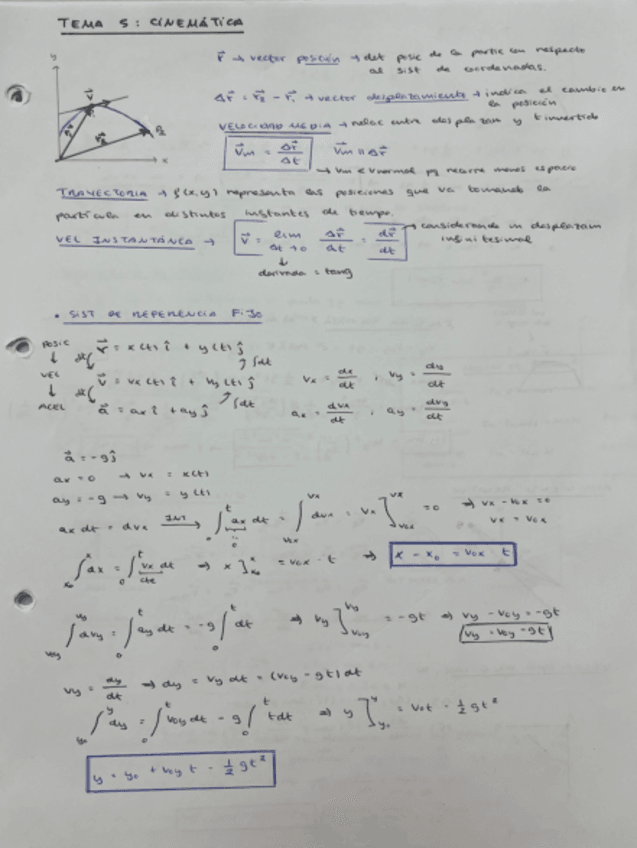 TEMA 5: CINEMÁTICA
y
r⃗ → vector posición → det posic de la partic con respecto
al sist de coordenadas.
v⃗
Δr⃗ = r⃗₂ - r⃗₁ → vector desplazamiento → indica el cambio en
la posición
VELOCIDAD MEDIA → relac entre desplazam y t invertido
x
v⃗m = Δr⃗/Δt   v⃗m ∥ Δr⃗
→ vm < vnormal pq recorre menos espacio
TRAYECTORIA → f(x,y) representa las posiciones que va tomando la
partícula en distintos instantes de tiempo.
VEL INSTANTÁNEA → v⃗ = lim Δt→0 Δr⃗/Δt = dr⃗/dt → considerando un desplazam
infinitesimal
↓
derivada = tang
• SIST DE REFERENCIA FIJO
POSIC r⃗ = x(t) î + y(t) ĵ
↓ ∫dt
VEL v⃗ = vx(t) î + vy(t) ĵ   vx = dx/dt , vy = dy/dt
↓ ∫dt
ACEL a⃗ = ax î + ay ĵ   ax = dvx/dt , ay = dvy/dt
a⃗ = -gĵ
ax = 0 → vx = x(t)
ay = -g → vy = y(t)
ax dt = dvx INT → ∫₀ᵗ ax dt = ∫ᵥ₀ₓ^vx dvx = vx]ᵥ₀ₓ^vx = 0 ⇒ vx - v0x = 0
0   vx = v0x
∫ₓ₀ˣ dx = ∫₀ᵗ vx dt ⇒ x]ₓ₀ˣ = v0x · t ⇒ x - x₀ = v0x · t
cte
∫_v0y^vy dvy = ∫₀ᵗ ay dt = -g ∫₀ᵗ dt ⇒ vy]_v0y^vy = -gt ⇒ vy - v0y = -gt
vy = v0y - gt
vy = dy/dt ⇒ dy = vy dt = (v0y - gt) dt
∫_y₀^y dy = ∫₀ᵗ v0y dt - g ∫₀ᵗ t dt ⇒ y]_y₀^y = v0t - ½ gt²
y = y₀ + v0y t - ½ gt²